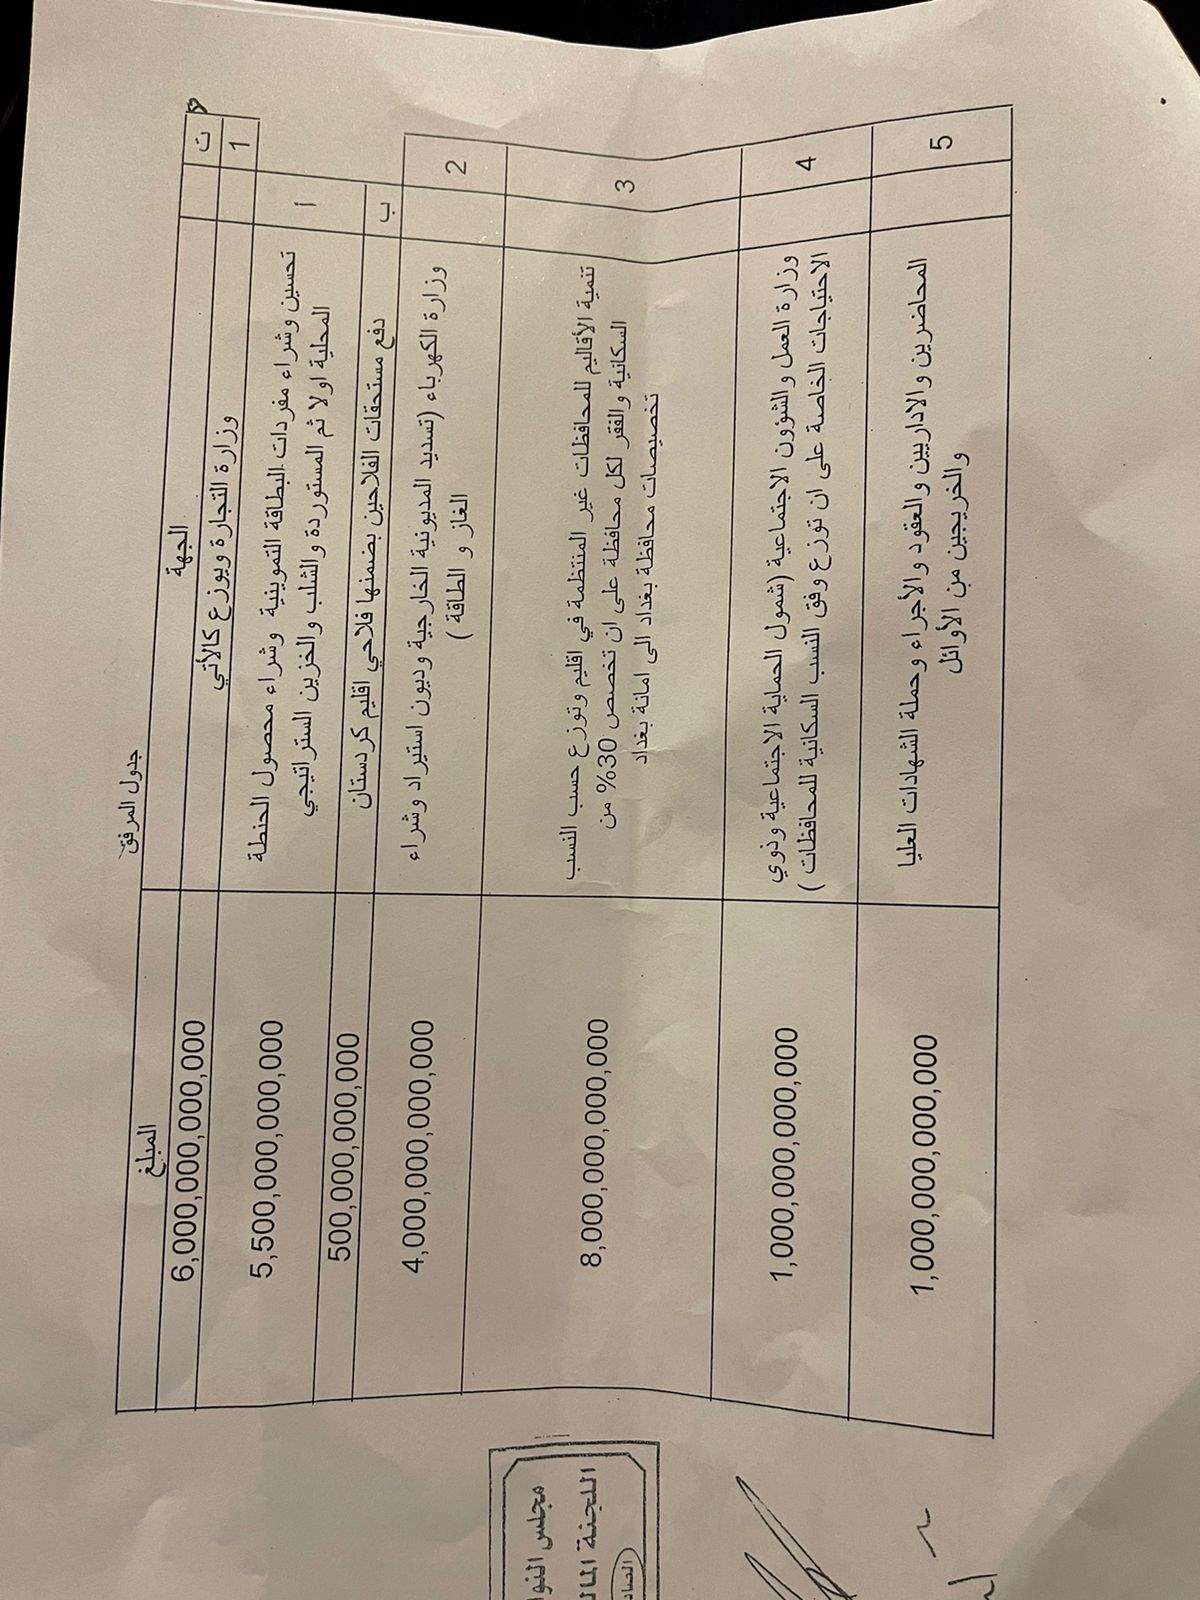 جدول المرفق
ت
الجهة
المبلغ
1
وزارة التجارة ويوزع كالأتي
6,000,000,000,000
أ
تحسين وشراء مفردات البطاقة التموينية وشراء محصول الحنطة
المحلية اولا ثم المستوردة والشلب والخزين الستراتيجي
5,500,000,000,000
ب
دفع مستحقات الفلاحين بضمنها فلاحي اقليم كردستان
500,000,000,000
2
وزارة الكهرباء (تسديد المديونية الخارجية وديون استيراد وشراء
الغاز و الطاقة )
4,000,000,000,000
3
تنمية الأقاليم للمحافظات غير المنتظمة في اقليم وتوزع حسب النسب
السكانية والفقر لكل محافظة على ان تخصص 30% من
تخصيصات محافظة بغداد الى امانة بغداد
8,000,000,000,000
4
وزارة العمل والشؤون الاجتماعية (شمول الحماية الاجتماعية وذوي
الاحتياجات الخاصة على ان توزع وفق النسب السكانية للمحافظات )
1,000,000,000,000
5
المحاضرين والاداريين والعقود والأجراء وحملة الشهادات العليا
والخريجين من الأوائل
1,000,000,000,000
مجلس
اللجنة